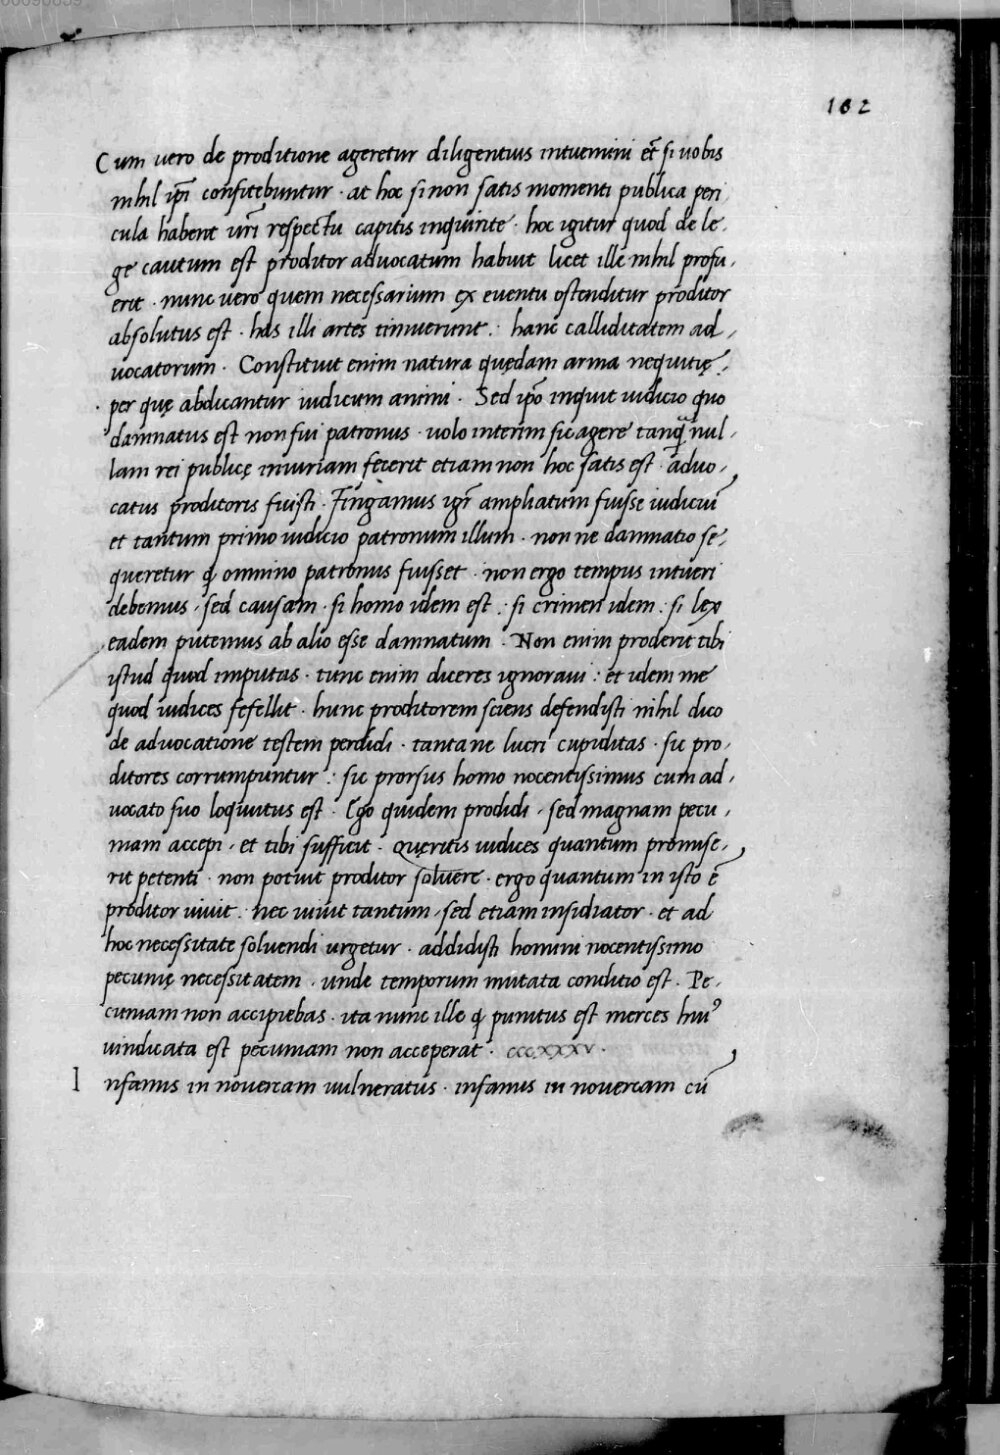 162
Cum vero de proditione ageretur diligentius intuemini et̄ si uobis
nihil ip̄i confitebuntur · at hoc si non satis momenti publica peri,
cula habent ur̄i respectu capitis inquirite · hoc igitur quod de le,
ge cautum est proditor advocatum habuit licet ille nihil profu,
erit · nunc vero quem necessarium ex eventu ostenditur proditor
absolutus est · has illi artes timuerunt : hanc calliditatem ad,
uocatorum · Constituit enim natura quędam arma nequitię,
per quę abdicantur iudicum animi · Sed ip̄o inquit iudicio quo
damnatus est non fui patronus · uolo interim sic agere tanq̄ nul,
lam rei publicę iniuriam fecerit etiam non hoc satis est · aduo,
catus proditoris fuisti · Fingamus igr̄ ampliatum fuisse iudiciū
et tantum primo iudicio patronum illum · non ne damnatio se,
queretur q̨ omnino patronus fuisset · non ergo tempus intueri
debemus · sed causam · si homo idem est : si crimen idem : si lex
eadem putemus ab alio esse damnatum · Non enim proderit tibi
istud quod imputas · tunc enim diceres ignoraui : et idem me
quod iudices fefellit · hunc proditorem sciens defendisti nihil dico
de advocatione testem perdidi · tanta ne lucri cupiditas · sic pro,
ditores corrumpuntur : sic prorsus homo nocentissimus cum ad,
uocato suo loquutus est · Ego quidem prodidi, sed magnam pecu,
niam accepi, et tibi sufficit · Quęritis iudices quantum promise,
rit petenti · non potuit proditor soluere · ergo quantum in isto ē
proditor uiuit · nec uiuit tantum, sed etiam insidiator · et ad
hoc necessitate soluendi urgetur · addidisti homini nocentissimo
pecunię necessitatem · unde temporum mutata conditio est · Pe,
cuniam non accipiebas · ita nunc ille q̨ punitus est merces hui⁹
uindicata est pecuniam non acceperat · cccxxxv ·
Infamis in nouercam uulneratus · infamis in nouercam cū